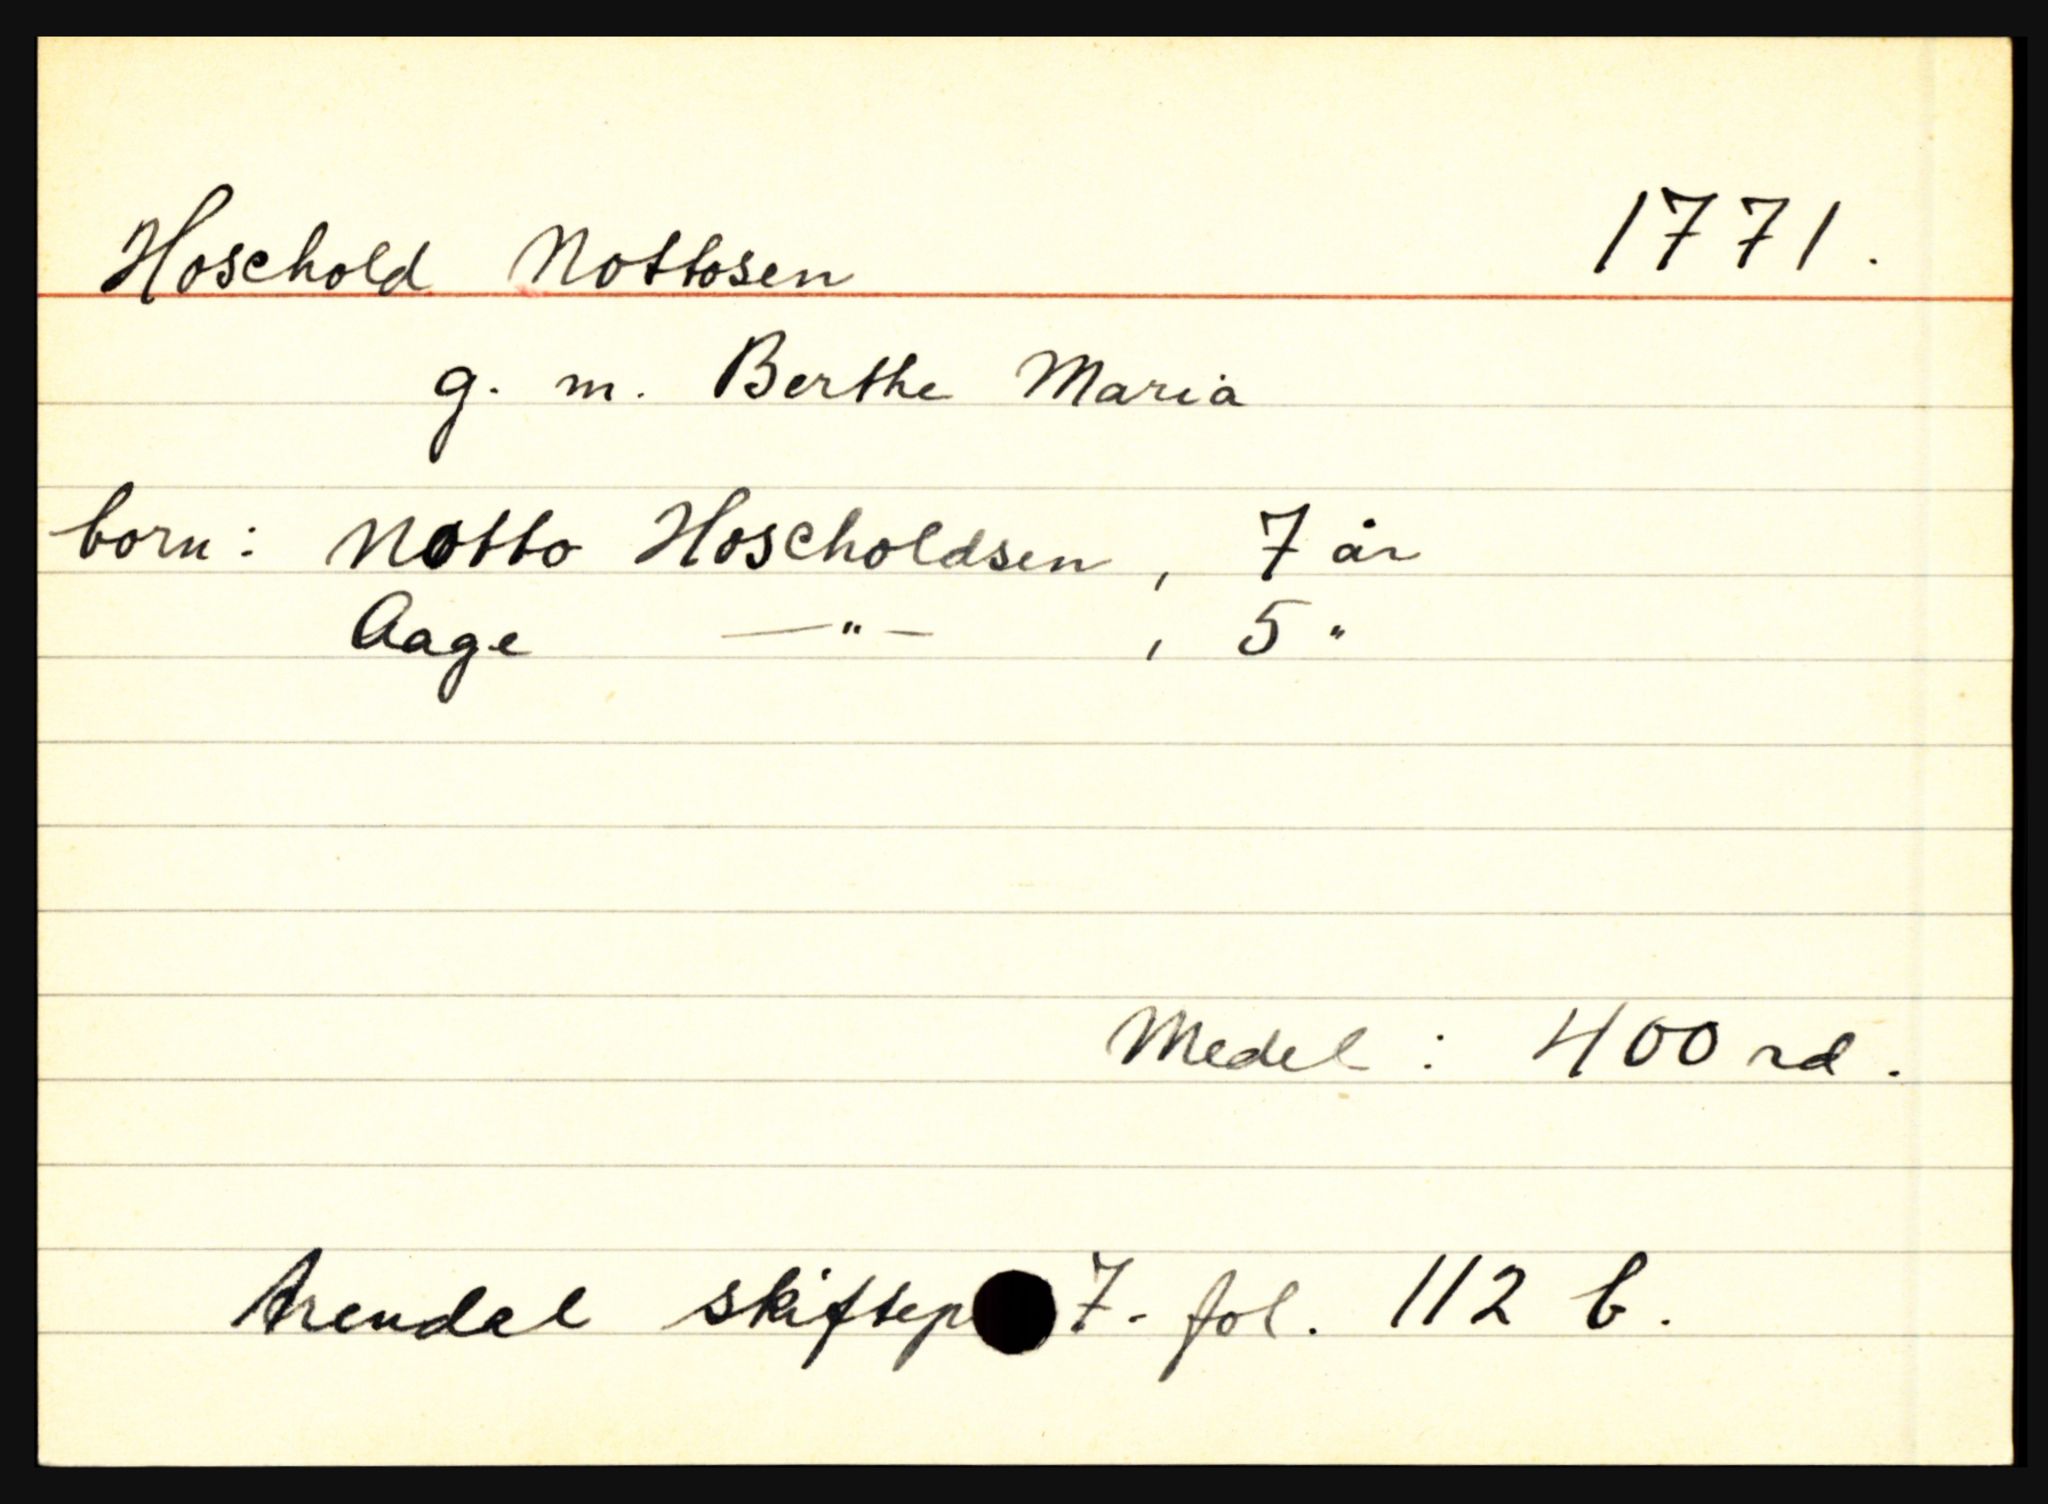 Hoschold Nottosen 1771.
g. m. Berthe Maria
born: Notto Hoscholdsen, 7 år
Aage —"— , 5 "
Medel: 400 rd.
Arendal skiftep 7 - fol. 112 b.